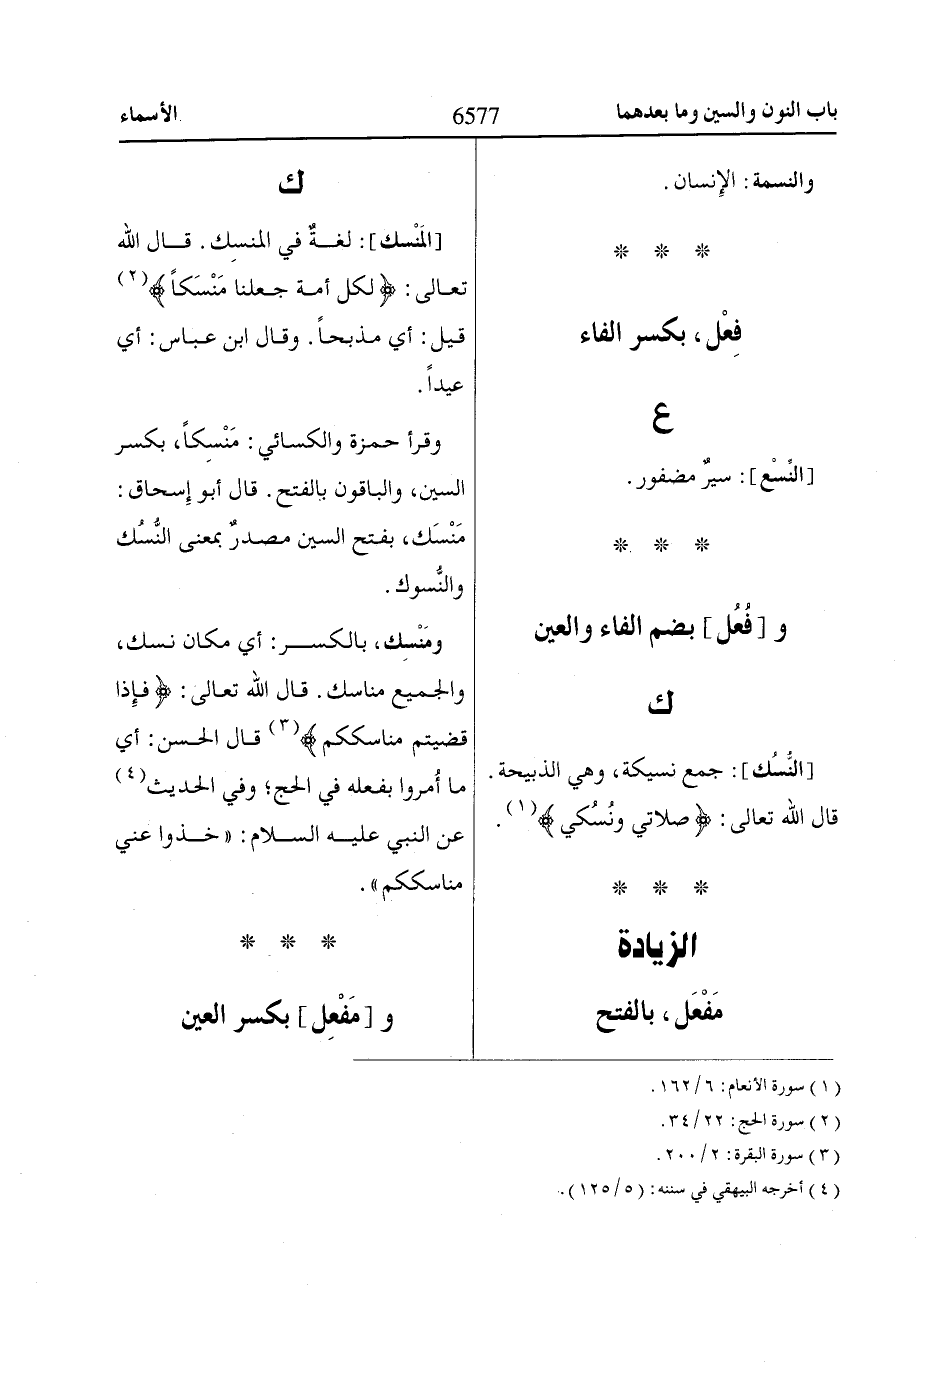 باب النون والسين وما بعدهما
6577
الأسماء
والنسمة: الإنسان.
* * *
فِعْل، بكسر الفاء
ع
[النِّسْع]: سيرٌ مضفور.
* * *
و [فُعُل] بضم الفاء والعين
ك
[النُّسُك]: جمع نسيكة، وهي الذبيحة.
قال الله تعالى: ﴿صلاتي ونُسُكي﴾(١).
* * *
الزيادة
مَفْعَل، بالفتح
ك
[المَنْسك]: لغةٌ في المنسِك. قال الله
تعالى: ﴿لكل أمة جعلنا مَنْسَكاً﴾(٢)
قيل: أي مذبحاً. وقال ابن عباس: أي
عيداً.
وقرأ حمزة والكسائي: مَنْسِكاً، بكسر
السين، والباقون بالفتح. قال أبو إسحاق:
مَنْسَك، بفتح السين مصدرٌ بمعنى النُّسُك
والنُّسوك.
ومَنْسِك، بالكسر: أي مكان نسك،
والجميع مناسك. قال الله تعالى: ﴿فإذا
قضيتم مناسككم﴾(٣) قال الحسن: أي
ما أُمروا بفعله في الحج؛ وفي الحديث(٤)
عن النبي عليه السلام: «خذوا عني
مناسككم».
* * *
و [مَفْعِل] بكسر العين
(١) سورة الأنعام: ٦/ ١٦٢.
(٢) سورة الحج: ٢٢/ ٣٤.
(٣) سورة البقرة: ٢/ ٢٠٠.
(٤) أخرجه البيهقي في سننه: (٥/ ١٢٥).